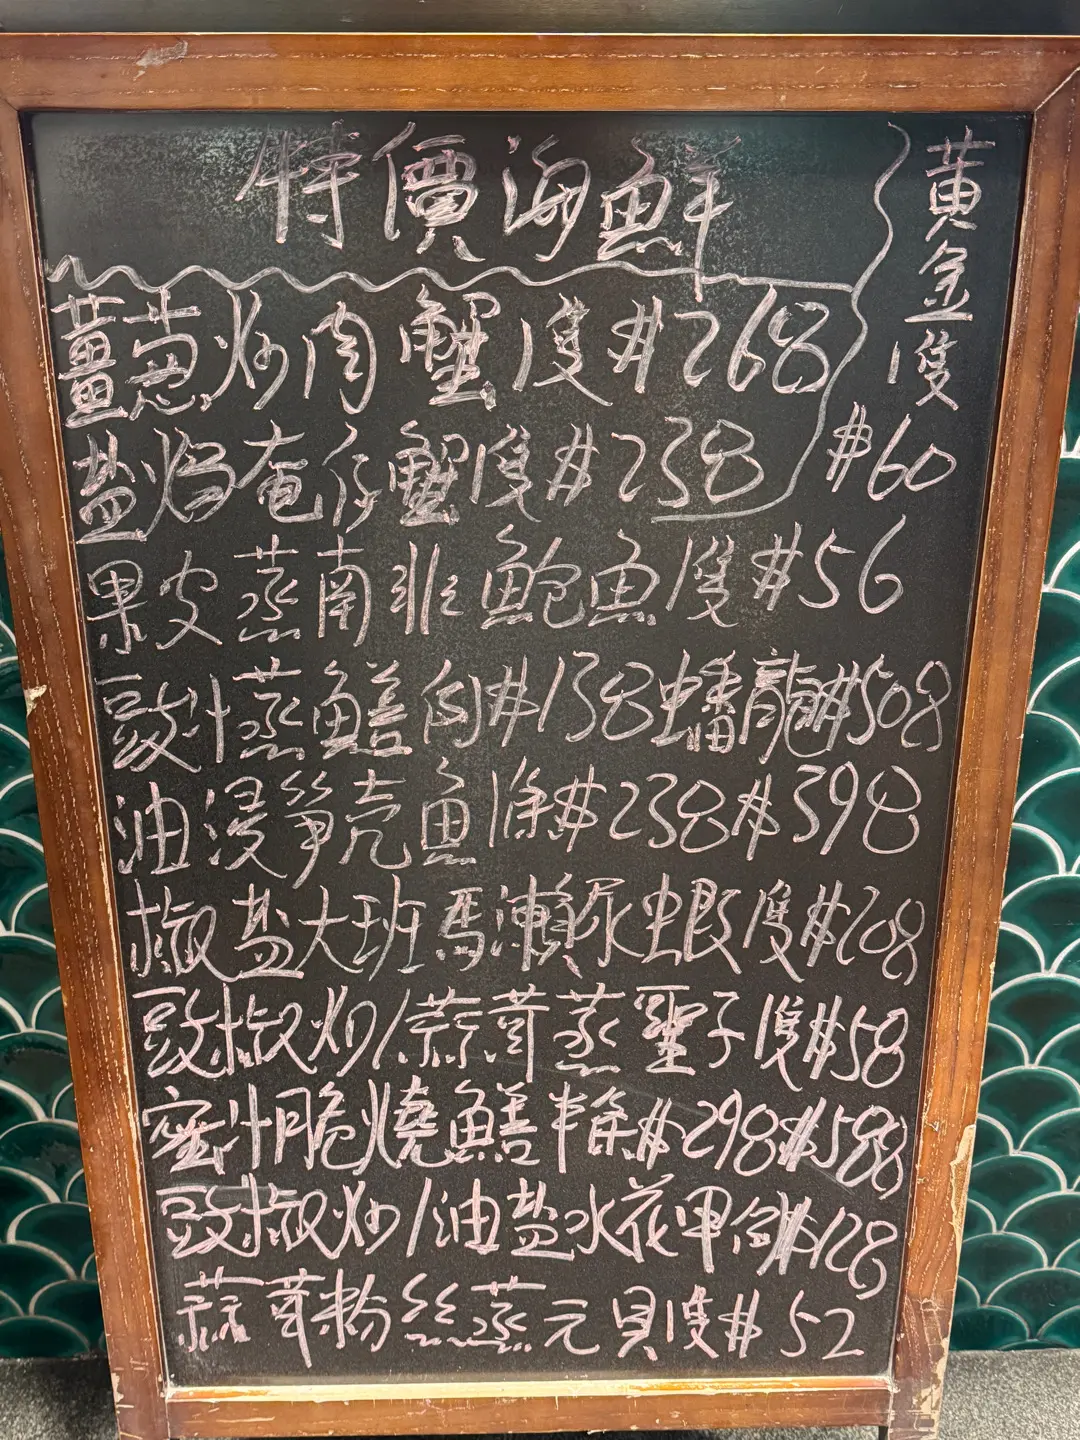 特價海鮮
薑葱炒肉蟹隻$268
盐焗奄仔蟹隻$238
果皮蒸南非鮑魚隻$56
豉汁蒸鱔 $138 蟠龍$508
油浸笋壳魚條$238 $398
椒盐大班馬瀨尿虫蝦隻$208
豉椒炒/蒜茸蒸聖子隻$58
蜜汁脆燒鱔半條$298 $588
豉椒炒/油盐水花甲 $128
蒜茸粉丝蒸元貝隻$52
黄金隻
$60